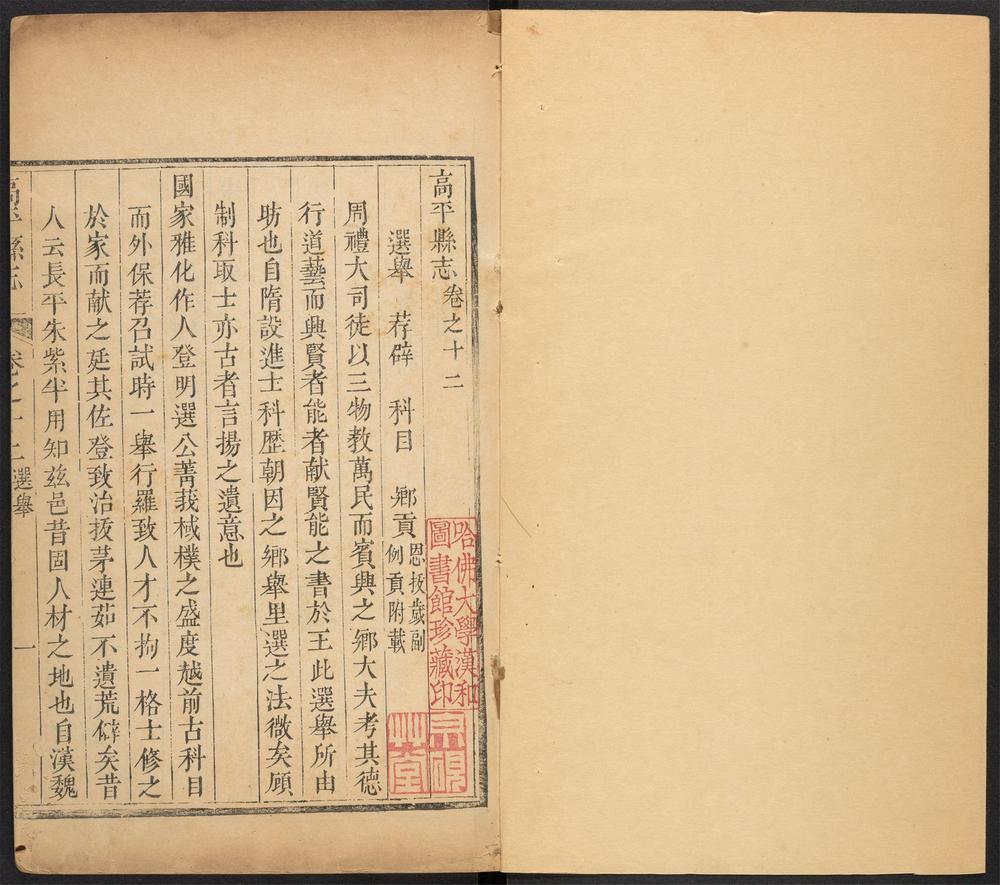 高平縣志卷之十二
選舉 荐辟 科目 鄉貢 恩拔歲副例貢附載
周禮大司徒以三物教萬民而賓興之鄉大夫考其德
行道藝而興賢者能者献賢能之書於王此選舉所由
昉也自隋設進士科歷朝因之鄉舉里選之法微矣顧
制科取士亦古者言揚之遺意也
國家雅化作人登明選公菁莪棫樸之盛度越前古科目
而外保荐召試時一舉行羅致人才不拘一格士修之
於家而献之廷其佐登致治拔茅連茹不遺荒僻矣昔
人云長平朱紫半用知兹邑昔固人材之地也自漢魏
高平縣志 卷之十二 選舉 一
哈佛大學漢和
圖書館珍藏印